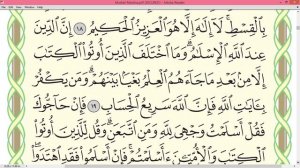 بِٱلْقِسْطِ ۚ لَآ إِلَٰهَ إِلَّا هُوَ ٱلْعَزِيزُ ٱلْحَكِيمُ ١٨ إِنَّ ٱلدِّينَ
عِندَ ٱللَّهِ ٱلْإِسْلَٰمُ ۗ وَمَا ٱخْتَلَفَ ٱلَّذِينَ أُوتُوا۟ ٱلْكِتَٰبَ
إِلَّا مِنۢ بَعْدِ مَا جَآءَهُمُ ٱلْعِلْمُ بَغْيًۢا بَيْنَهُمْ ۗ وَمَن يَكْفُرْ
بِـَٔايَٰتِ ٱللَّهِ فَإِنَّ ٱللَّهَ سَرِيعُ ٱلْحِسَابِ ١٩ فَإِنْ حَآجُّوكَ
فَقُلْ أَسْلَمْتُ وَجْهِىَ لِلَّهِ وَمَنِ ٱتَّبَعَنِ ۗ وَقُل لِّلَّذِينَ أُوتُوا۟
ٱلْكِتَٰبَ وَٱلْأُمِّيِّـۧنَ ءَأَسْلَمْتُمْ ۚ فَإِنْ أَسْلَمُوا۟ فَقَدِ ٱهْتَدَوا۟ ۖ